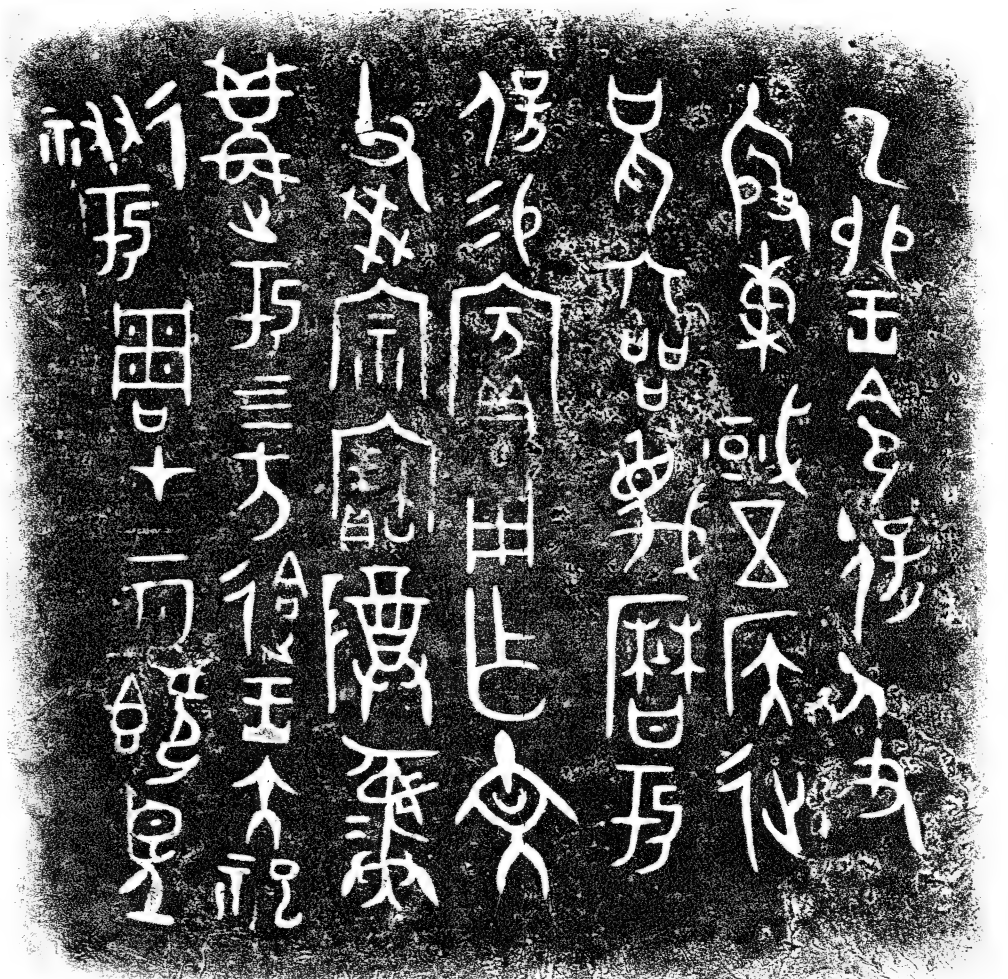 乙卯王令保及
殷東或五侯𢓊
兄六品蔑曆于
保易賓用乍文
父癸宗寶尊彝
遘于四方迨王大祀
于周才二月既望